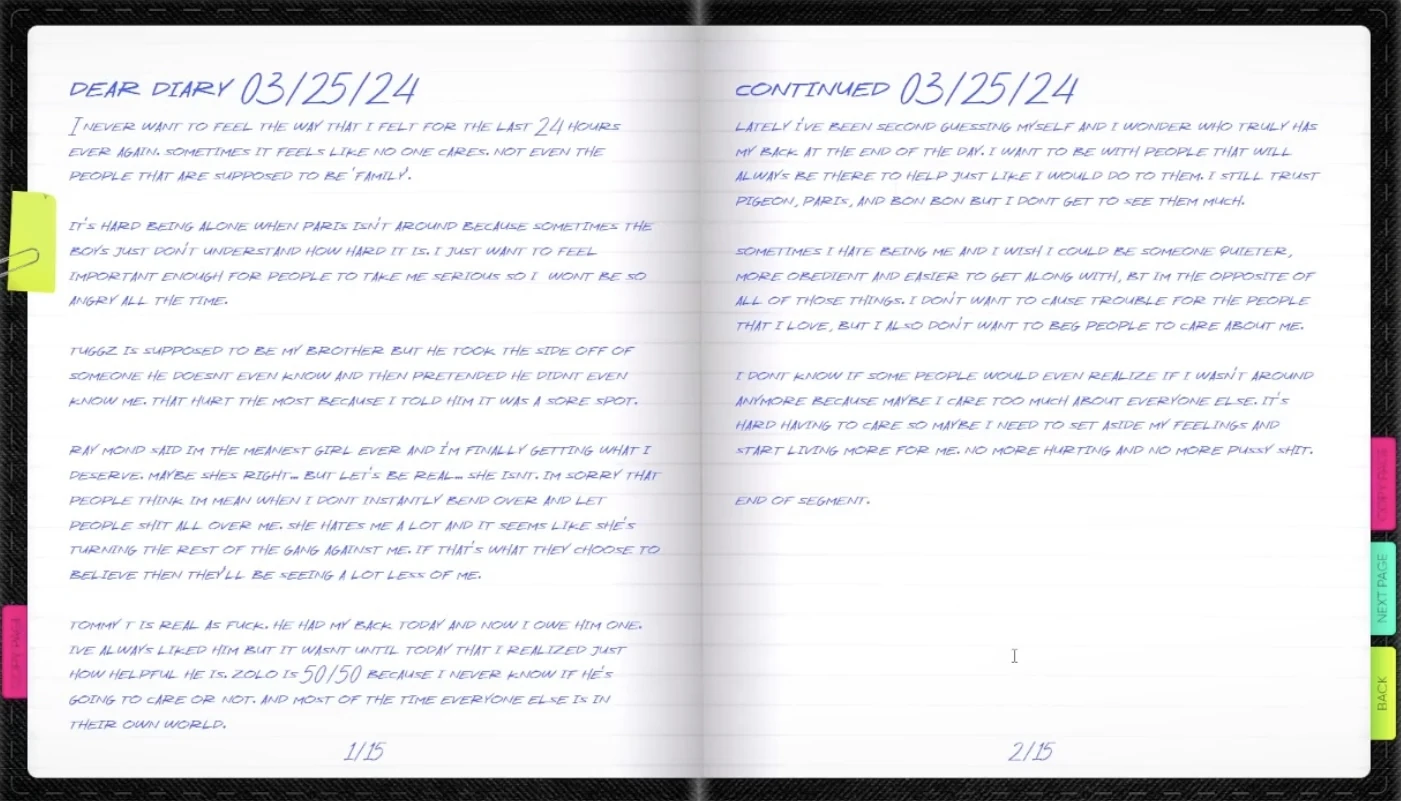 DEAR DIARY 03/25/24
I NEVER WANT TO FEEL THE WAY THAT I FELT FOR THE LAST 24 HOURS
EVER AGAIN. SOMETIMES IT FEELS LIKE NO ONE CARES. NOT EVEN THE
PEOPLE THAT ARE SUPPOSED TO BE 'FAMILY'.
IT'S HARD BEING ALONE WHEN PARIS ISN'T AROUND BECAUSE SOMETIMES THE
BOYS JUST DON'T UNDERSTAND HOW HARD IT IS. I JUST WANT TO FEEL
IMPORTANT ENOUGH FOR PEOPLE TO TAKE ME SERIOUS SO I WONT BE SO
ANGRY ALL THE TIME.
TUGGZ IS SUPPOSED TO BE MY BROTHER BUT HE TOOK THE SIDE OFF OF
SOMEONE HE DOESNT EVEN KNOW AND THEN PRETENDED HE DIDNT EVEN
KNOW ME. THAT HURT THE MOST BECAUSE I TOLD HIM IT WAS A SORE SPOT.
RAY MOND SAID IM THE MEANEST GIRL EVER AND I'M FINALLY GETTING WHAT I
DESERVE. MAYBE SHES RIGHT... BUT LET'S BE REAL... SHE ISNT. IM SORRY THAT
PEOPLE THINK IM MEAN WHEN I DONT INSTANTLY BEND OVER AND LET
PEOPLE SHIT ALL OVER ME. SHE HATES ME A LOT AND IT SEEMS LIKE SHE'S
TURNING THE REST OF THE GANG AGAINST ME. IF THAT'S WHAT THEY CHOOSE TO
BELIEVE THEN THEY'LL BE SEEING A LOT LESS OF ME.
TOMMY T IS REAL AS FUCK. HE HAD MY BACK TODAY AND NOW I OWE HIM ONE.
IVE ALWAYS LIKED HIM BUT IT WASNT UNTIL TODAY THAT I REALIZED JUST
HOW HELPFUL HE IS. ZOLO IS 50/50 BECAUSE I NEVER KNOW IF HE'S
GOING TO CARE OR NOT. AND MOST OF THE TIME EVERYONE ELSE IS IN
THEIR OWN WORLD.
1/15
CONTINUED 03/25/24
LATELY I'VE BEEN SECOND GUESSING MYSELF AND I WONDER WHO TRULY HAS
MY BACK AT THE END OF THE DAY. I WANT TO BE WITH PEOPLE THAT WILL
ALWAYS BE THERE TO HELP JUST LIKE I WOULD DO TO THEM. I STILL TRUST
PIGEON, PARIS, AND BON BON BUT I DONT GET TO SEE THEM MUCH.
SOMETIMES I HATE BEING ME AND I WISH I COULD BE SOMEONE QUIETER,
MORE OBEDIENT AND EASIER TO GET ALONG WITH, BT IM THE OPPOSITE OF
ALL OF THOSE THINGS. I DON'T WANT TO CAUSE TROUBLE FOR THE PEOPLE
THAT I LOVE, BUT I ALSO DON'T WANT TO BEG PEOPLE TO CARE ABOUT ME.
I DONT KNOW IF SOME PEOPLE WOULD EVEN REALIZE IF I WASN'T AROUND
ANYMORE BECAUSE MAYBE I CARE TOO MUCH ABOUT EVERYONE ELSE. IT'S
HARD HAVING TO CARE SO MAYBE I NEED TO SET ASIDE MY FEELINGS AND
START LIVING MORE FOR ME. NO MORE HURTING AND NO MORE PUSSY SHIT.
END OF SEGMENT.
2/15
COPY PAGE
NEXT PAGE
BACK